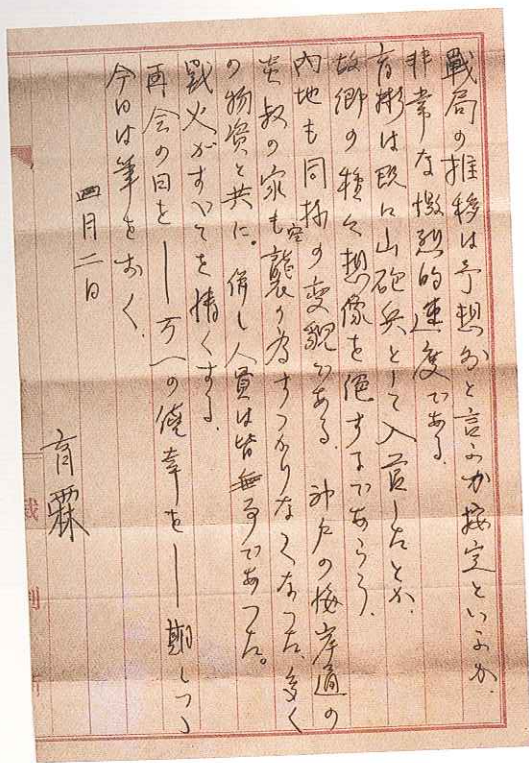 戰局の推移は予想外と言ふか按定といふか、
非常な激烈的速度である。
育彬は既に山砲兵として入営したとか、
故鄉の積々想像を絶するであらう。
內地も同様の変貌である。神戸の海岸通の
炎叔の家も空襲の為すつかりなくなつた、多く
の物資と共に。併し人員は皆無事であつた。
戰火がすべてを情くする。
再会の日を──万一の僥幸を──期しつゝ
今日は筆をおく、
四月二日
育霖
裁判所